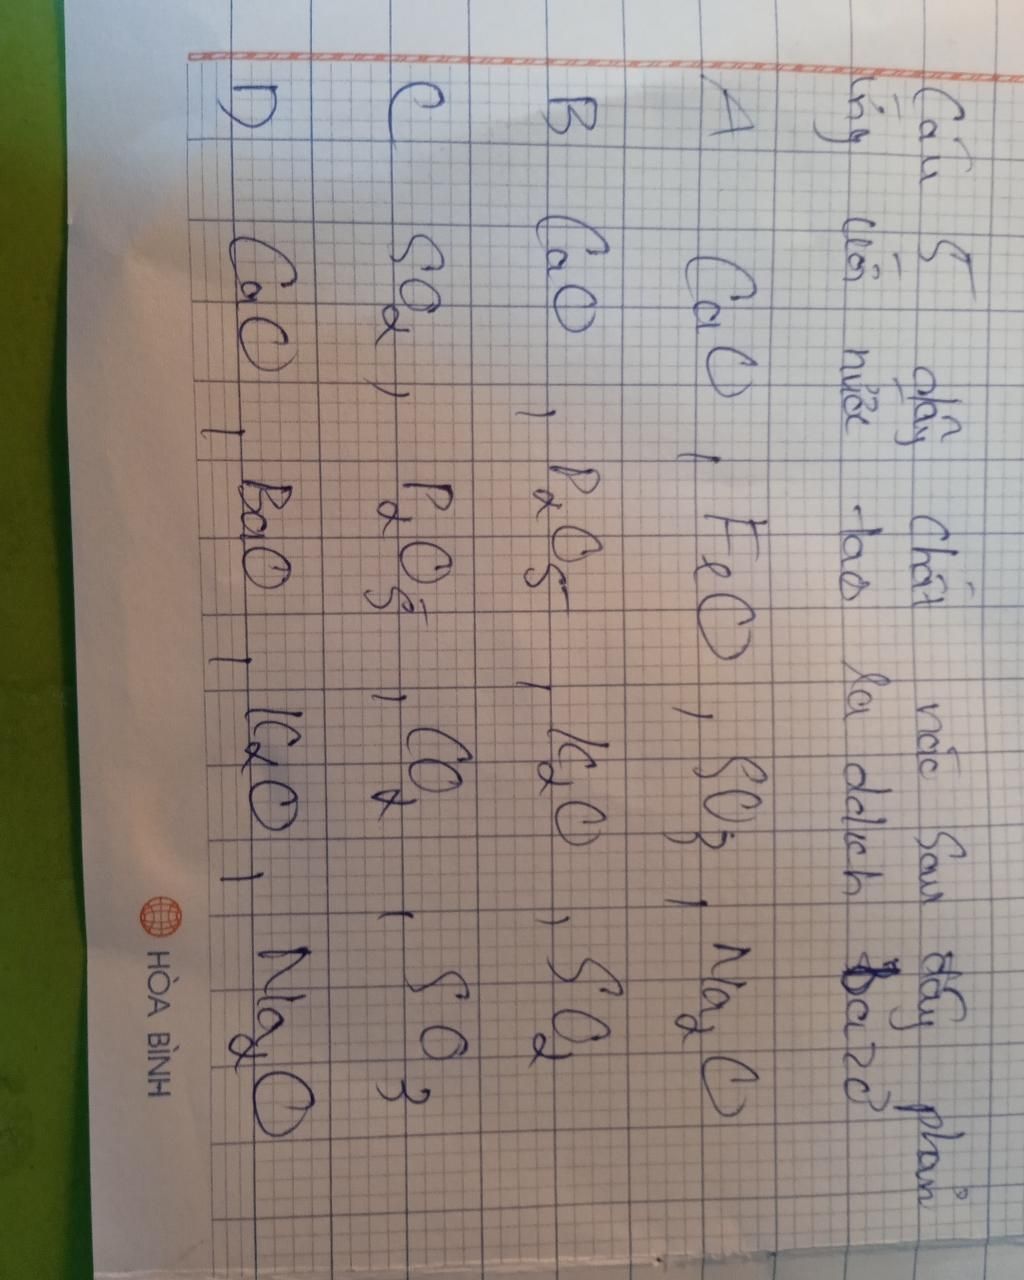 Câu 5 dãy chất nào sau đây phản
ứng với nước tạo ra ddịch bazơ
A CaO , FeO , SO3 , Na2O
B CaO , P2O5 , K2O , SO2
C SO2 , P2O5 , CO2 , SO3
D CaO , BaO , K2O , Na2O
HÒA BÌNH